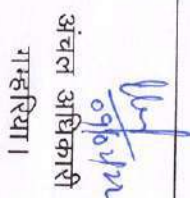 अंचल अधिकारी
गम्हरिया।